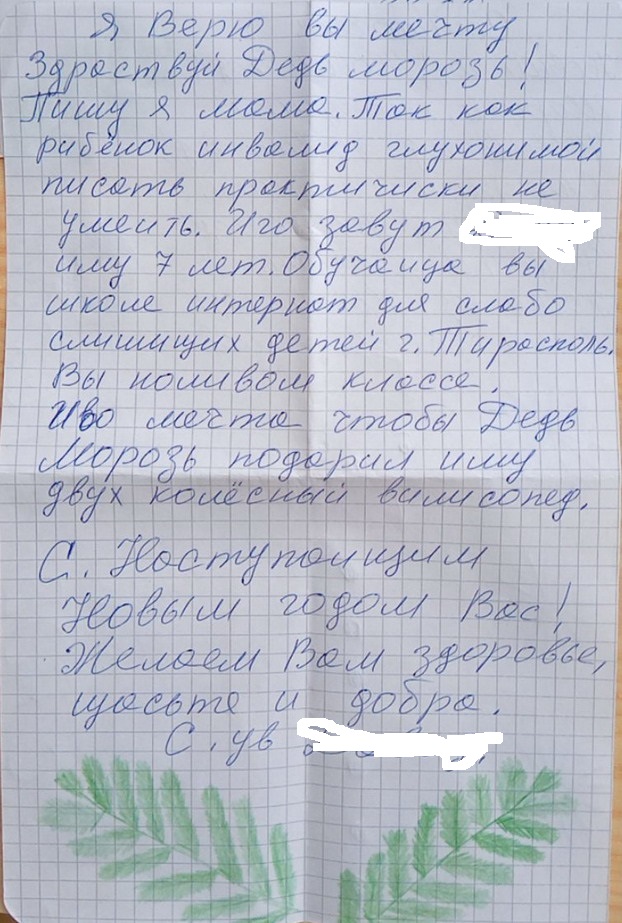 Я Верю вы мечту
Здраствуй Дедь морозь!
Пишу я мама. Так как
рибёнок инвалид глухонимой
писать практически не
умеить. Иго завут
иму 7 лет. Обучаица вы
школе интернат для слабо
слишищих детей г. Тирасполь.
Выноливом классе.
Иво мечта чтобы Дедь
Морозь подарил иму
двух колёсный вилисопед.
С. Наступаищим
Новым годом Вас!
Желаем Вам здоровье,
щасьте и добра.
С. ув